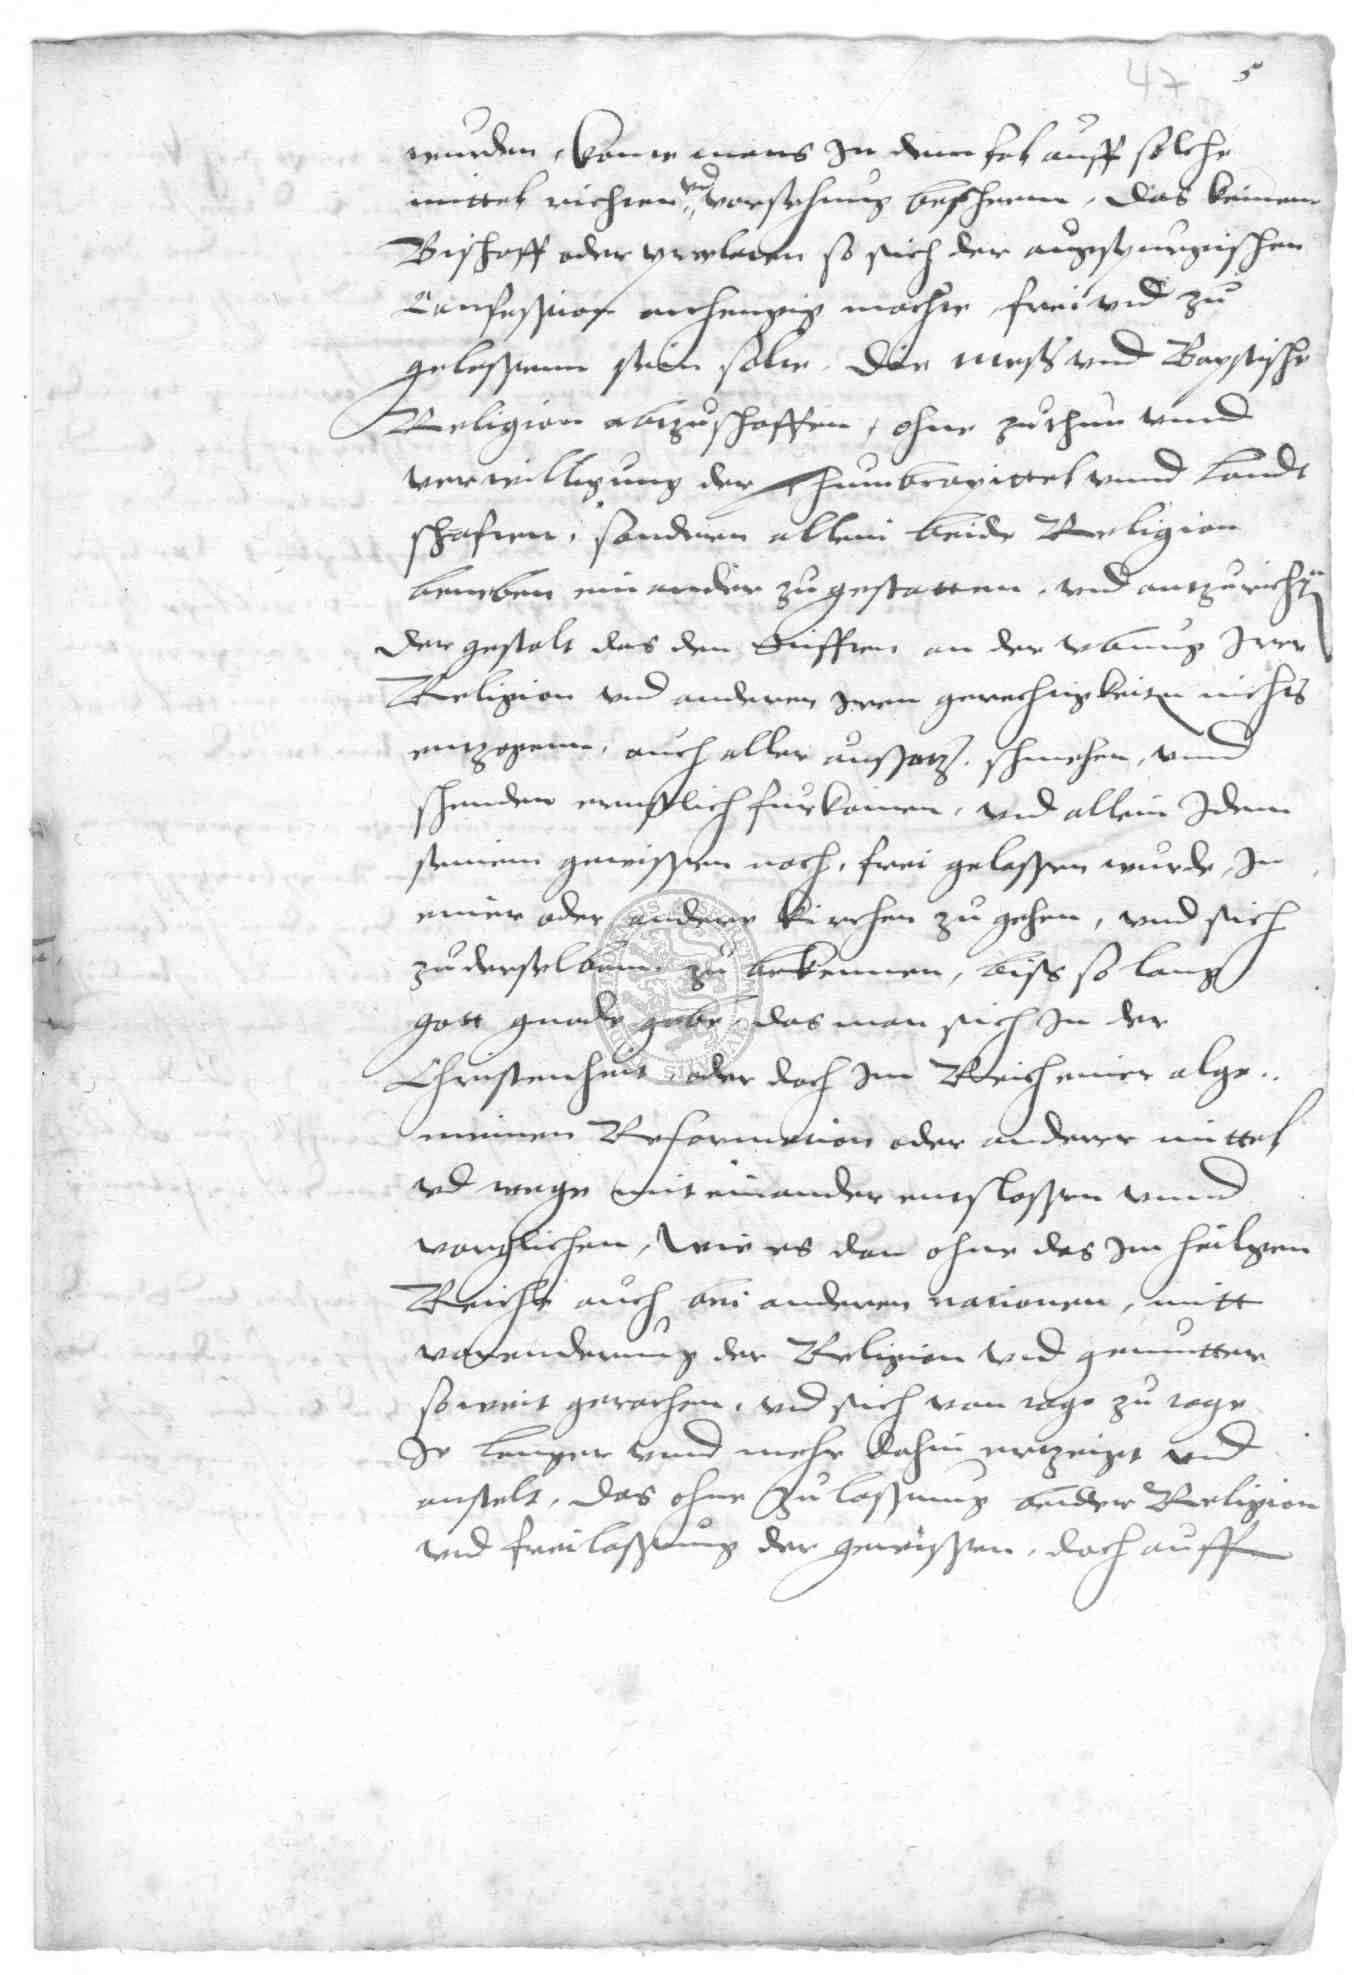 47 5
wurden, konte mans In dem fal auff solche
mittel richten vnd vorsehung beschehenn, das keinem
Bischoff oder prelaten so sich der augspurgischen
Confession anhengig machte frei vnd zu
gelassenn sein solte, die Mess vnd Bapstische
Religion abzuschaffen, ohne zuthun vnnd
verwilligung der Thumbcapittel vnnd Landt
schafften, sonderen allein beide Religion
beneben einander zugestatten, vnd antzurichten
der gestalt das den Stifften an der vbung Irer
Religion vnd anderen Iren gerechtigkeiten nichts
entzogenn, auch aller auffsatz, schmehen, vnnd
schenden ernstlich furkomen, vnd allein Idem
seinem gewissen nach, frei gelassen wurde, In
einer oder andere kirchen zu gehen, vnd sich
zu derselben zu bekennen, biss so lang
gott gnade gebe, das man sich In der
Christenheit, oder doch Im Reich einer alge..
meinen Reformation oder anderer mittel
vnd wege mit einander entslossen vnnd
vorglichen, Wie es dan ohne das Im heiligen
Reiche auch bei anderen nationen, mitt
voranderung der Religion vnd gemutter
so weit gerathen, vnd sich von tage zu tage
Je lenger vnnd mehr dahin ertzeigt vnd
anstelt, das ohne zulassung beider Religion
vnd freilassung der gewissen, doch auff